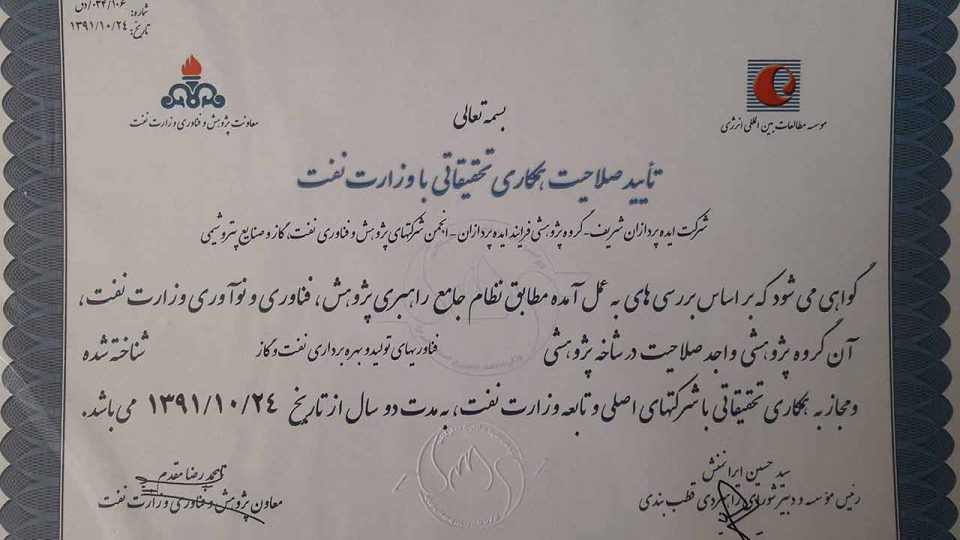 شماره: ۰۳۴/۱۰۶/دل
تاریخ: ۱۳۹۱/۱۰/۲۴
موسسه مطالعات بین المللی انرژی
معاونت پژوهش و فناوری وزارت نفت
بسمه تعالی
تأیید صلاحیت همکاری تحقیقاتی با وزارت نفت
شرکت ایده پردازان شریف-گروه پژوهشی فرایند ایده پردازان-انجمن شرکتهای پژوهش و فناوری نفت، گاز و صنایع پتروشیمی
گواهی می شود که بر اساس بررسی های به عمل آمده مطابق نظام جامع راهبری پژوهش، فناوری و نوآوری وزارت نفت،
آن گروه پژوهشی واجد صلاحیت در شاخه پژوهشی فناوریهای تولید و بهره برداری نفت و گاز شناخته شده
و مجاز به همکاری تحقیقاتی با شرکتهای اصلی و تابعه وزارت نفت، به مدت دو سال از تاریخ ۱۳۹۱/۱۰/۲۴ می باشد.
سید حسین ایرانمنش
رئیس مؤسسه و دبیر شورای راهبردی قطب بندی
محمد رضا مقدم
معاون پژوهش و فناوری وزارت نفت